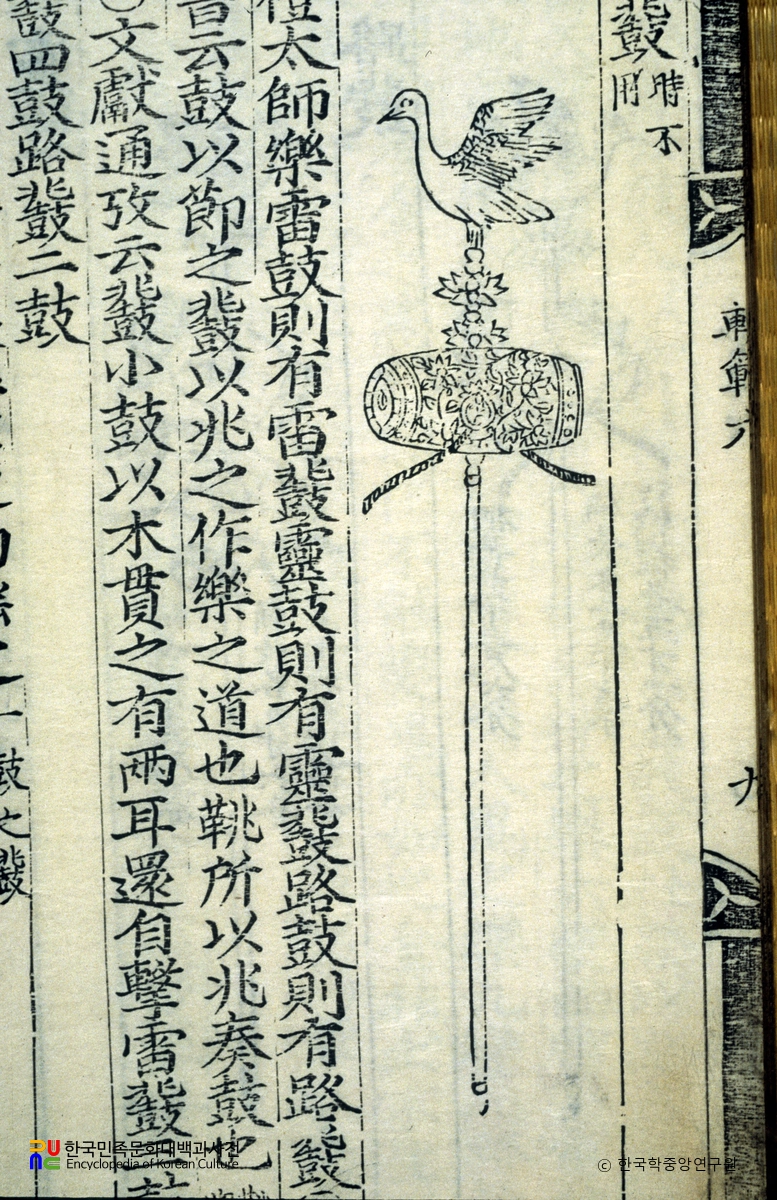 鼗
時不
用
太師樂雷鼓則有雷鼗靈鼓則有靈鼗路鼓則有路鼗
云鼓以節之鼗以兆之作樂之道也鞉所以兆奏鼓也
○文獻通攷云鼗小鼓以木貫之有兩耳還自擊雷鼗
鼓四鼓路鼗二鼓
軌範六
九
한국민족문화대백과사전
Encyclopedia of Korean Culture
© 한국학중앙연구원